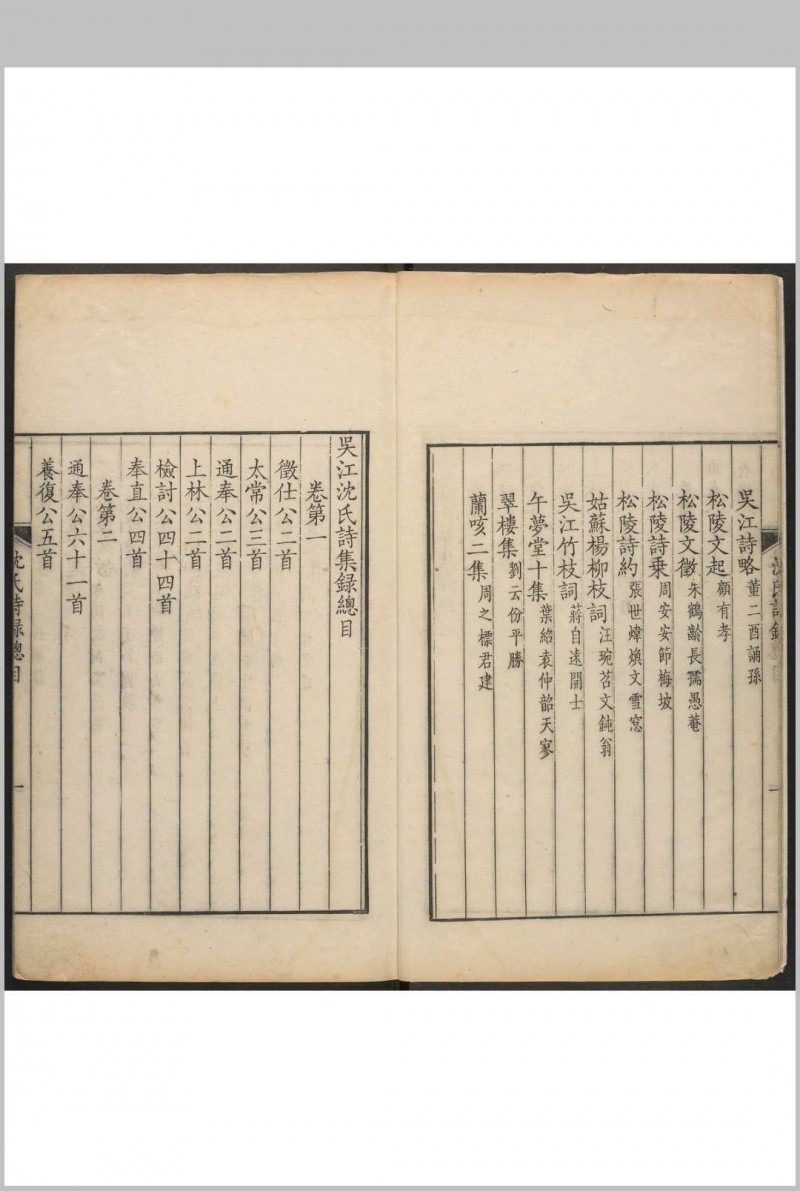 吳江詩略董二酉誦孫
松陵文起顧有孝
松陵文徵朱鶴齡長孺愚菴
松陵詩乘周安安節梅坡
松陵詩約張世煒煥文雪窓
姑蘇楊柳枝詞汪琬苕文鈍翁
吳江竹枝詞蔣自遠開士
午夢堂十集葉紹袁仲韶天寥
翠樓集劉云份平勝
蘭咳二集周之標君建
吳江沈氏詩集録總目
卷第一
徵仕公二首
太常公三首
通奉公二首
上林公二首
檢討公四十四首
奉直公四首
卷第二
通奉公六十一首
養復公五首
沈氏詩録總目
一